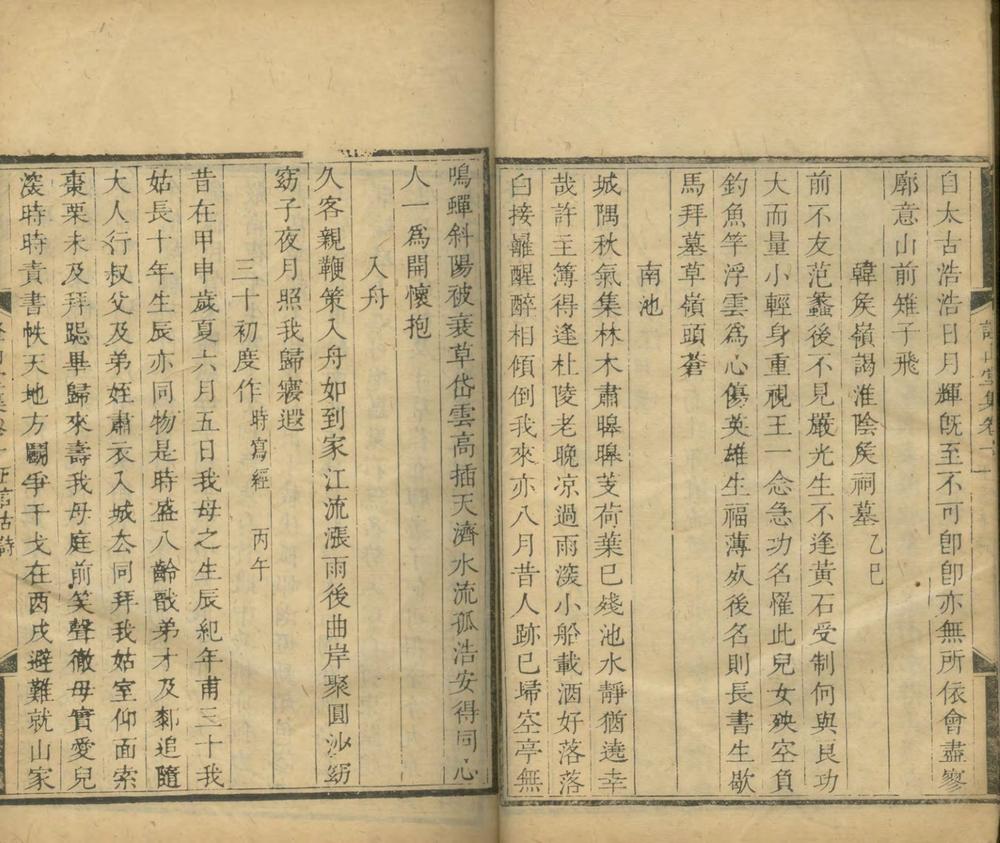 自太古浩浩日月輝旣至不可卽卽亦無所依會盡寥
廓意山前雉子飛
韓矦嶺謁淮陰矦祠墓乙巳
前不友范蠡後不見嚴光生不逢黃石受制何與良功
大而量小輕身重視王一念急功名罹此兒女殃空負
釣魚竿浮雲爲心傷英雄生福薄𣦸後名則長書生歇
馬拜墓草嶺頭蒼
南池
城隅秋氣集林木肅睥睥芰荷葉已殘池水靜猶遶幸
哉許主簿得逢杜陵老晚凉過雨滾小船載酒好落落
白接䍦醒醉相傾倒我來亦八月昔人跡已埽空亭無
鳴蟬斜陽被衰草岱雲高插天濟水流孤浩安得同心
人一爲開懷抱
入舟
久客親鞭策入舟如到家江流漲雨後曲岸聚圓沙窈
窈子夜月照我歸寢遐
三十初度作時寫經 丙午
昔在甲申歲夏六月五日我母之生辰紀年甫三十我
姑長十年生辰亦同物是時盛八齡戲弟才及郀追隨
大人行叔父及弟姪肅衣入城去同拜我姑室仰面索
棗栗未及拜跽畢歸來壽我母庭前笑聲徹母實愛兒
滾時時責書帙天地方鬭爭干戈在酉戌避難就山家
堂集卷十一
五言古詩